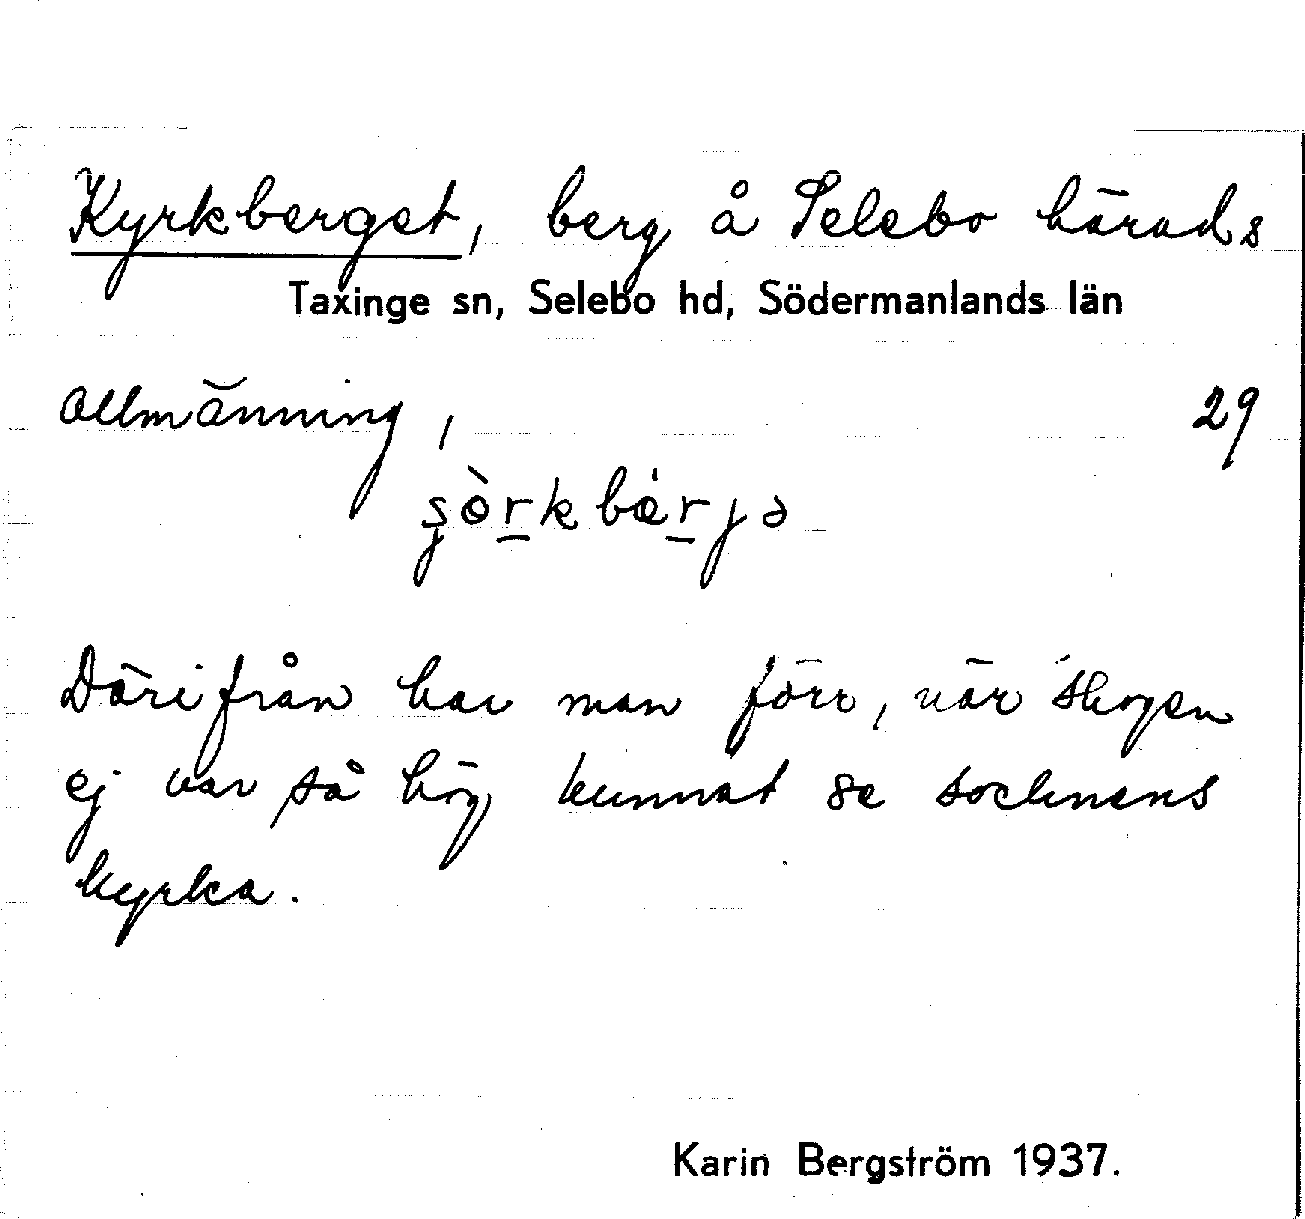 Kyrkberget, berg å Selebo härads
Taxinge sn, Selebo hd, Södermanlands län
allmänning,
29
Därifrån har man förr, när skogen
ej var så hög kunnat se socknens
kyrka.
Karin Bergström 1937.